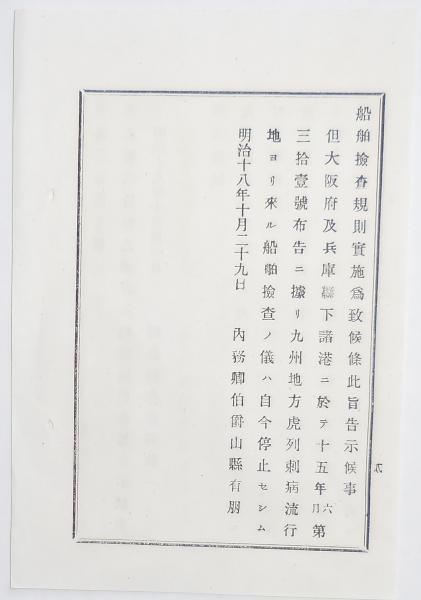 船舶撿査規則實施爲致候條此旨告示候事
但大阪府及兵庫縣下諸港ニ於テ十五年六月第
三拾壹號布告ニ據リ九州地方虎列剌病流行
地ヨリ來ル船舶撿查ノ儀ハ自今停止セシム
明治十八年十月二十九日 內務卿伯爵山縣有朋